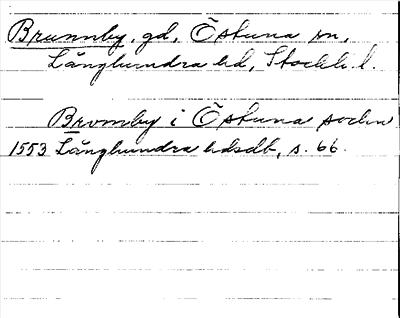 Brunnby, gd, Östuna sn,
Långhundra hd, Stockh. l.
Bromby i Östuna socken
1553 Långhundra hdsdb, s. 66.